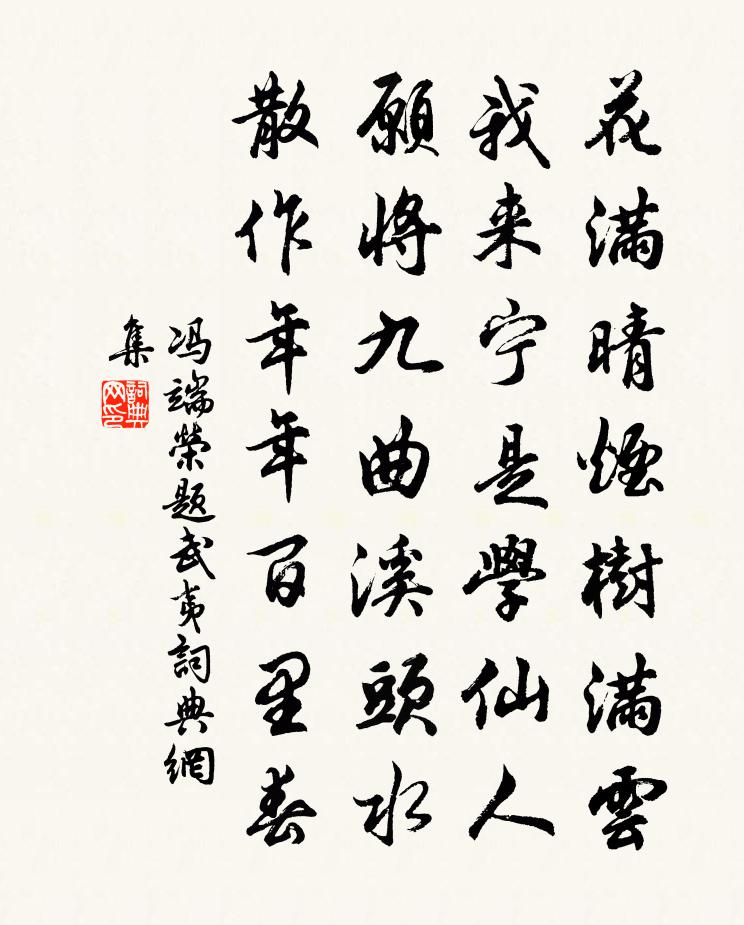 花满晴煙樹满雲
我来宁是學仙人
願将九曲溪頭水
散作年年百里春
冯端榮題武夷詞典網
集
詞典
网印